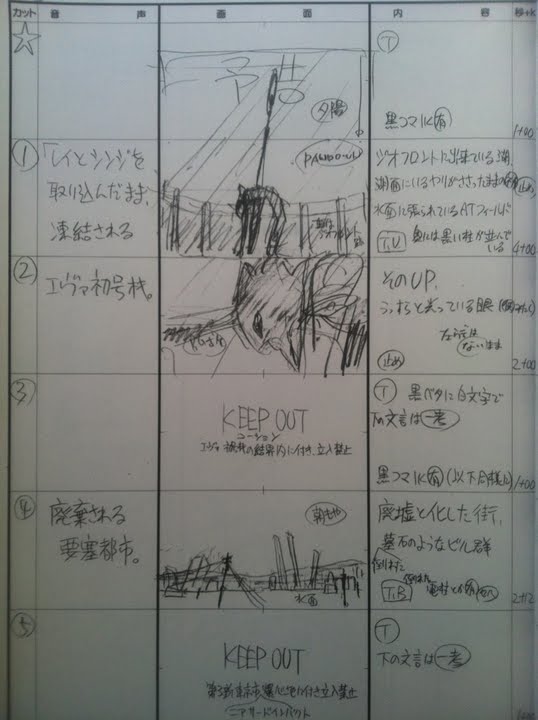 カット 音 声 画 面 内 容 秒+K
予告
夕陽
T
黒コマ1K有
1+00
①
「レイとシンジを
取り込んだまま、
凍結される
PAN DOWN
ジオフロントに出来ている湖、
湖面にいるヤリがささったままの
止め
水面に張られているATフィールド
T.U 奥には黒い柱が並んで
いる
4+00
②
エヴァ初号機。
そのUP、
うっすらと光っている眼
ないまま
止め
2+00
③
KEEP OUT
コーション
エヴァ初号機の結界内に付き、立入禁止
T 黒ベタに白文字で
下の文言は一考
黒コマ1K有(以下同様に)
1+00
④
廃棄される
要塞都市。
朝もや
水面
廃墟と化した街、
墓石のようなビル群
倒れた
T.B 電柱とか
2+12
⑤
KEEP OUT
付き立入禁止
ニアサードインパクト
T
下の文言は一考